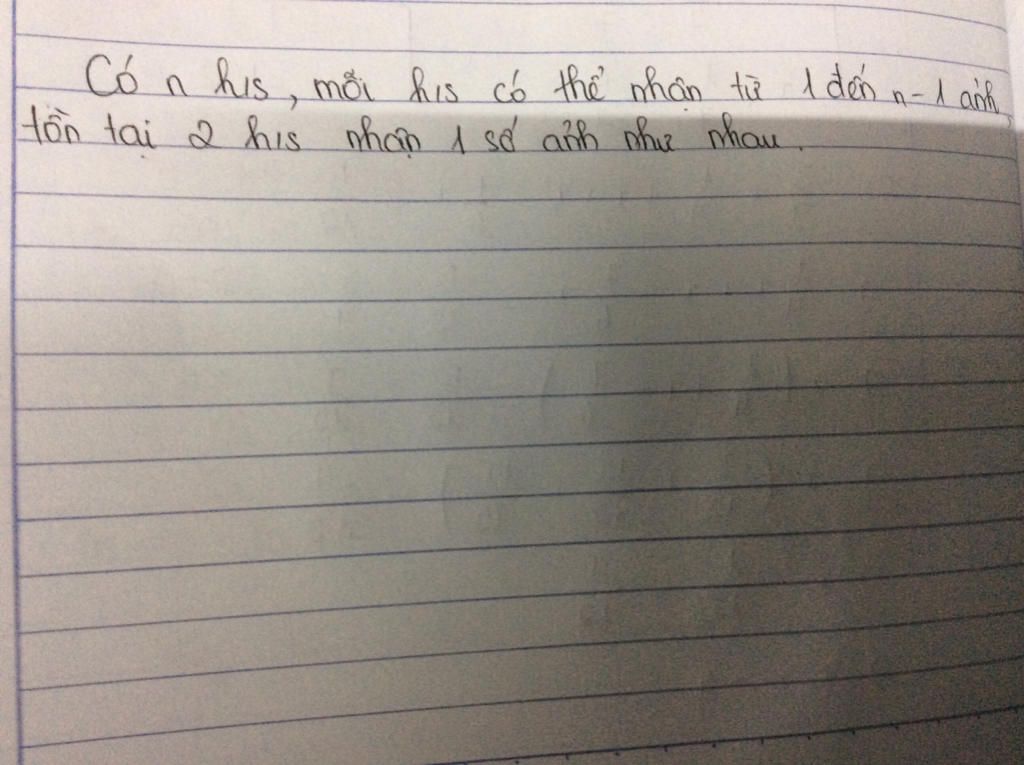 Có n his, mỗi his có thể nhận từ 1 đến n-1 ảnh,
tồn tại 2 his nhận 1 số ảnh như nhau.